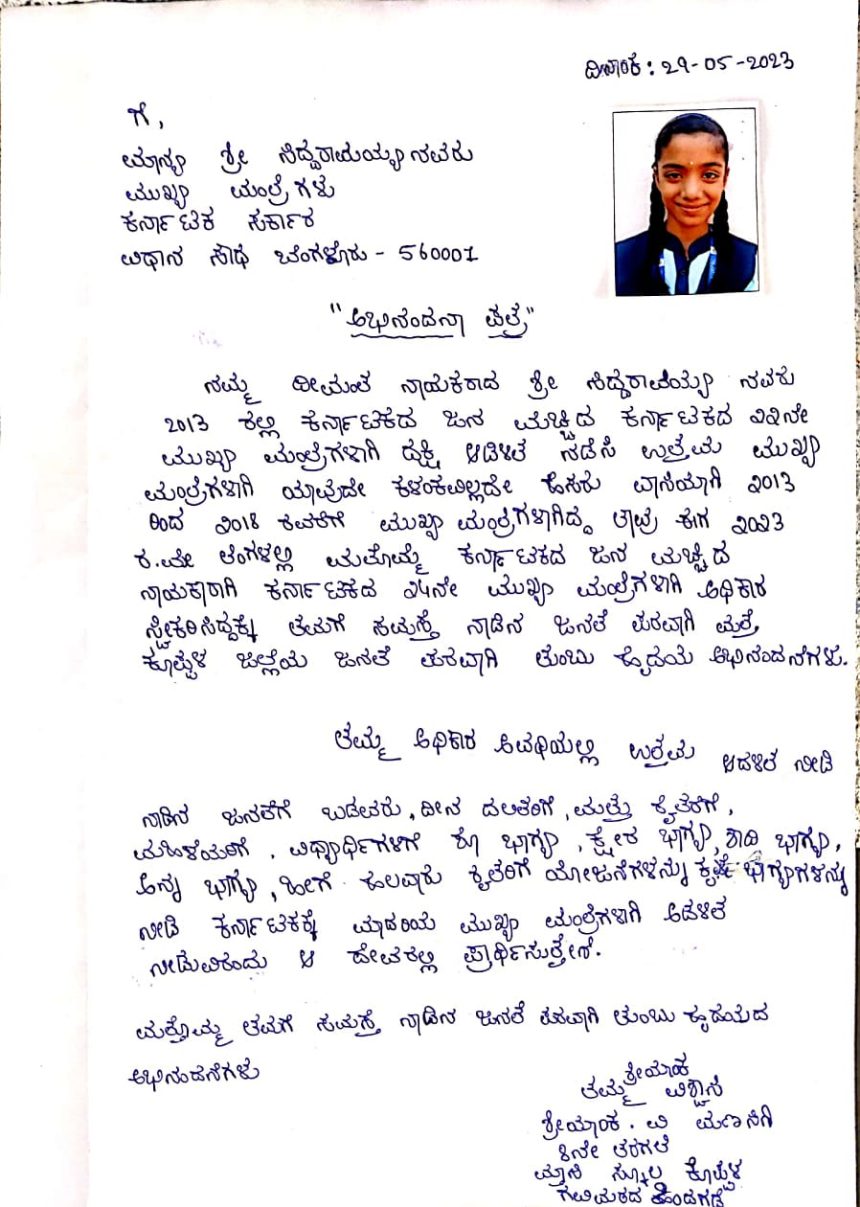 ದಿನಾಂಕ: 29-05-2023
ಗೆ,
ಮಾನ್ಯ ಶ್ರೀ ಸಿದ್ದರಾಮಯ್ಯನವರು
ಮುಖ್ಯ ಮಂತ್ರಿಗಳು
ಕರ್ನಾಟಕ ಸರ್ಕಾರ
ವಿಧಾನ ಸೌಧ ಬೆಂಗಳೂರು - 560001
"ಅಭಿನಂದನಾ ಪತ್ರ"
ನಮ್ಮ ಧೀಮಂತ ನಾಯಕರಾದ ಶ್ರೀ ಸಿದ್ದರಾಮಯ್ಯ ನವರು
2013 ರಲ್ಲಿ ಕರ್ನಾಟಕದ ಜನ ಮೆಚ್ಚಿದ ಕರ್ನಾಟಕದ ೨೨ನೇ
ಮುಖ್ಯ ಮಂತ್ರಿಗಳಾಗಿ ದಕ್ಷ ಆಡಳಿತ ನಡೆಸಿ ಉತ್ತಮ ಮುಖ್ಯ
ಮಂತ್ರಿಗಳಾಗಿ ಯಾವುದೇ ಕಳಂಕವಿಲ್ಲದೇ ಹೆಸರು ವಾಸಿಯಾಗಿ ೨013
ರಿಂದ ೨018 ರವರೆಗೆ ಮುಖ್ಯ ಮಂತ್ರಿಗಳಾಗಿದ್ದ ತಾವು ಈಗ ೨೦೨3
ರ ಮೇ ತಿಂಗಳಲ್ಲಿ ಮತೊಮ್ಮೆ ಕರ್ನಾಟಕದ ಜನ ಮೆಚ್ಚಿದ
ನಾಯಕರಾಗಿ ಕರ್ನಾಟಕದ ೨೪ನೇ ಮುಖ್ಯ ಮಂತ್ರಿಗಳಾಗಿ ಅಧಿಕಾರ
ಸ್ವೀಕರಿಸಿದ್ದಕ್ಕೆ ತಮಗೆ ಸಮಸ್ತ ನಾಡಿನ ಜನತೆ ಪರವಾಗಿ ಮತ್ತು
ಕೊಪ್ಪಳ ಜಿಲ್ಲೆಯ ಜನತೆ ಪರವಾಗಿ ತುಂಬು ಹೃದಯ ಅಭಿನಂದನೆಗಳು.
ತಮ್ಮ ಅಧಿಕಾರ ಅವಧಿಯಲ್ಲಿ ಉತ್ತಮ ಆಡಳಿತ ನೀಡಿ
ನಾಡಿನ ಜನತೆಗೆ ಬಡವರು, ದೀನ ದಲಿತರಿಗೆ, ಮತ್ತು ರೈತರಿಗೆ,
ಮಹಿಳೆಯರಿಗೆ, ವಿಧ್ಯಾರ್ಥಿಗಳಿಗೆ ಶೂ ಭಾಗ್ಯ, ಕ್ಷೀರ ಭಾಗ್ಯ, ಶಾದಿ ಭಾಗ್ಯ,
ಅನ್ನ ಭಾಗ್ಯ, ಹೀಗೆ ಹಲವಾರು ರೈತರಿಗೆ ಯೋಜನೆಗಳನ್ನು ಕೃಷಿ ಭಾಗ್ಯಗಳನ್ನು
ನೀಡಿ ಕರ್ನಾಟಕಕ್ಕೆ ಮಾದರಿಯ ಮುಖ್ಯ ಮಂತ್ರಿಗಳಾಗಿ ಆಡಳಿತ
ನೀಡುವಿರೆಂದು ಆ ದೇವರಲ್ಲಿ ಪ್ರಾರ್ಥಿಸುತ್ತೇನೆ.
ಮತ್ತೊಮ್ಮೆ ತಮಗೆ ಸಮಸ್ತ ನಾಡಿನ ಜನತೆ ಪರವಾಗಿ ತುಂಬು ಹೃದಯದ
ಅಭಿನಂದನೆಗಳು
ಶ್ರೀಯಾಂಕ
ತಮ್ಮ ವಿಶ್ವಾಸಿ
ಶ್ರೀಯಾಂಕ. ವಿ ಮಣ್ಣಸಿಗಿ
8ನೇ ತರಗತಿ
ಸ್ಕೂಲ ಕೊಪ್ಪಳ
ಗವಿಮಠದ ಹಿಂದಗಡೆ